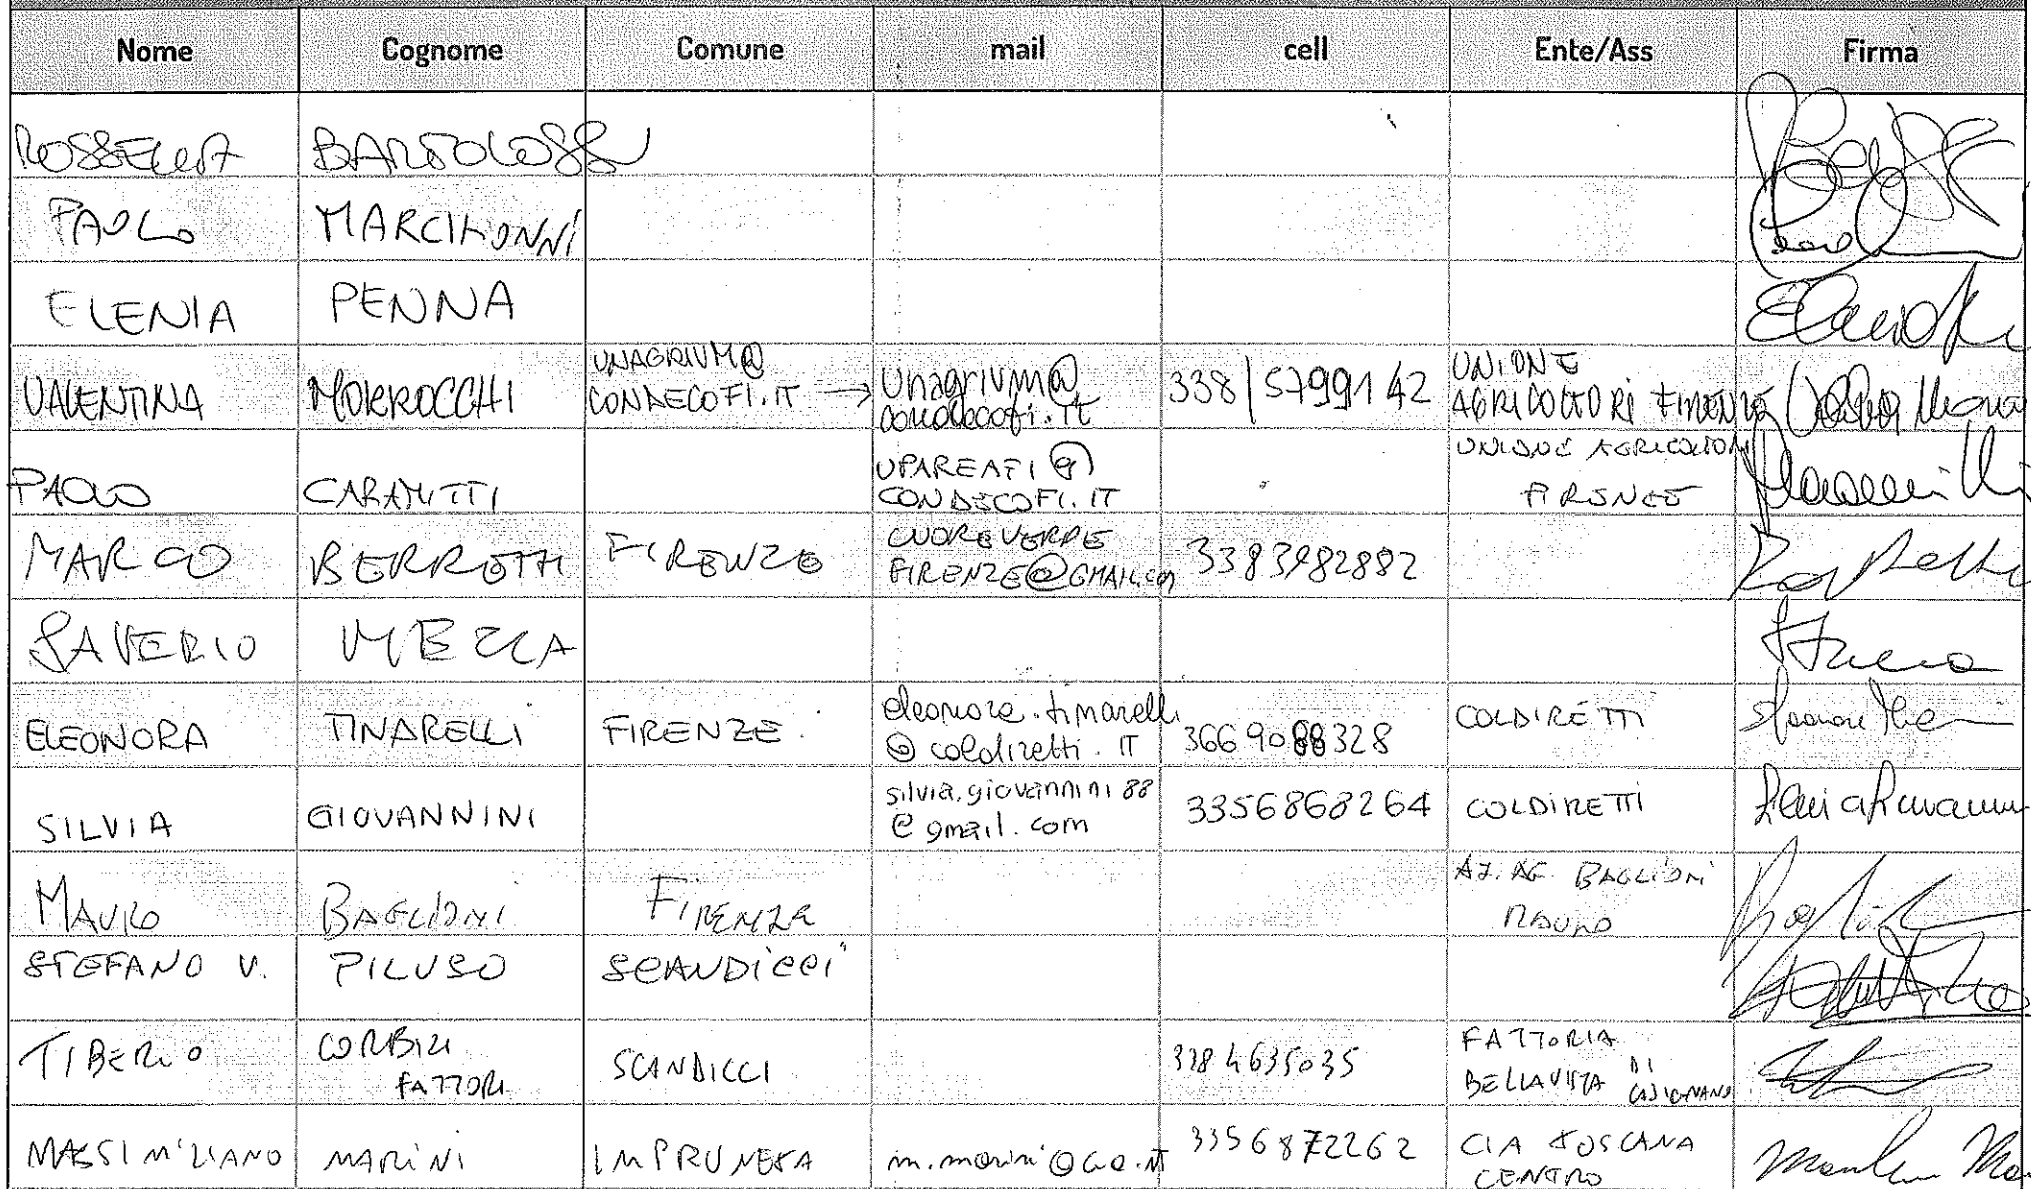 Nome Cognome Comune mail cell Ente/Ass Firma
ROSSELLA BARTOLOSSI
PAOLO MARCHIONNI
ELENIA PENNA
VALENTINA MORROCCHI UNAGRIVM@ CONDECOFI.IT → unagrivm@ condecofi.it 338/5799142 UNIONE AGRICOLTORI FIRENZE
PAOLO CARAMITTI UPAREAFI@ CONDECOFI.IT UNIONE AGRICOLTORI FIRENZE
MARCO BERRETTI FIRENZE CUOREVERDE FIRENZE@GMAIL.COM 3383982882
SAVERIO MECCA
ELEONORA TINARELLI FIRENZE eleonora.tinarelli @coldiretti.IT 3669088328 COLDIRETTI
SILVIA GIOVANNINI silvia.giovannini88 @gmail.com 3356868264 COLDIRETTI
MAURO BAGLIONI FIRENZE AZ. AG. BAGLIONI MAURO
STEFANO V. PILUSO SCANDICCI
TIBERIO CORBIZI FATTORI SCANDICCI 3384635035 FATTORIA BELLAVISTA DI CASIGNANO
MASSIMILIANO MARINI IMPRUNETA m.marini@cia.it 3356872262 CIA TOSCANA CENTRO